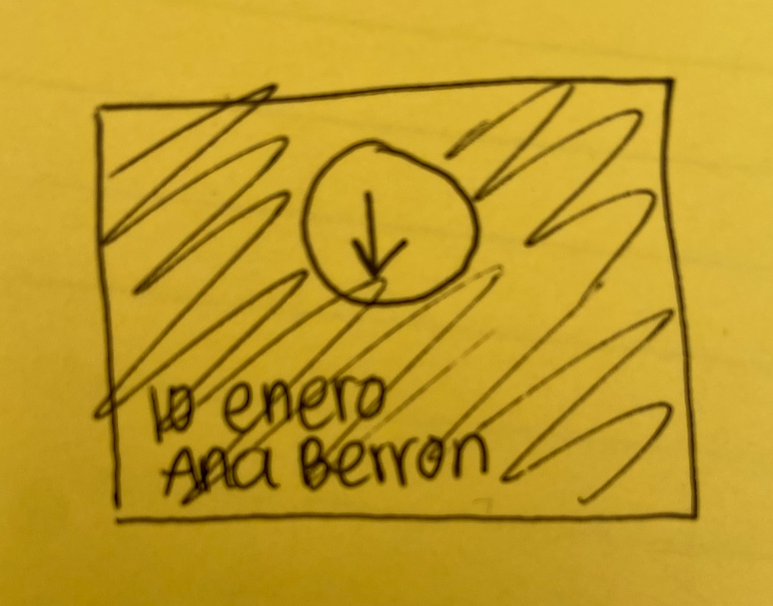 10 enero
Ana Berron